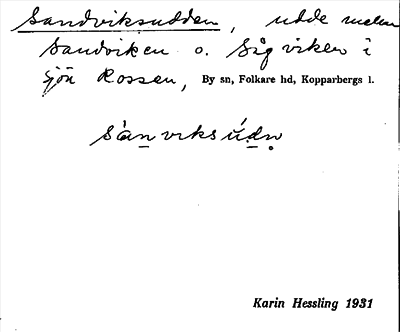 Sandviksudden, udde mellan
Sandviken o. Sågviken i
sjön Rossen, By sn, Folkare hd, Kopparbergs l.
sàn̲vıksúd̲ṇ
Karin Hessling 1931